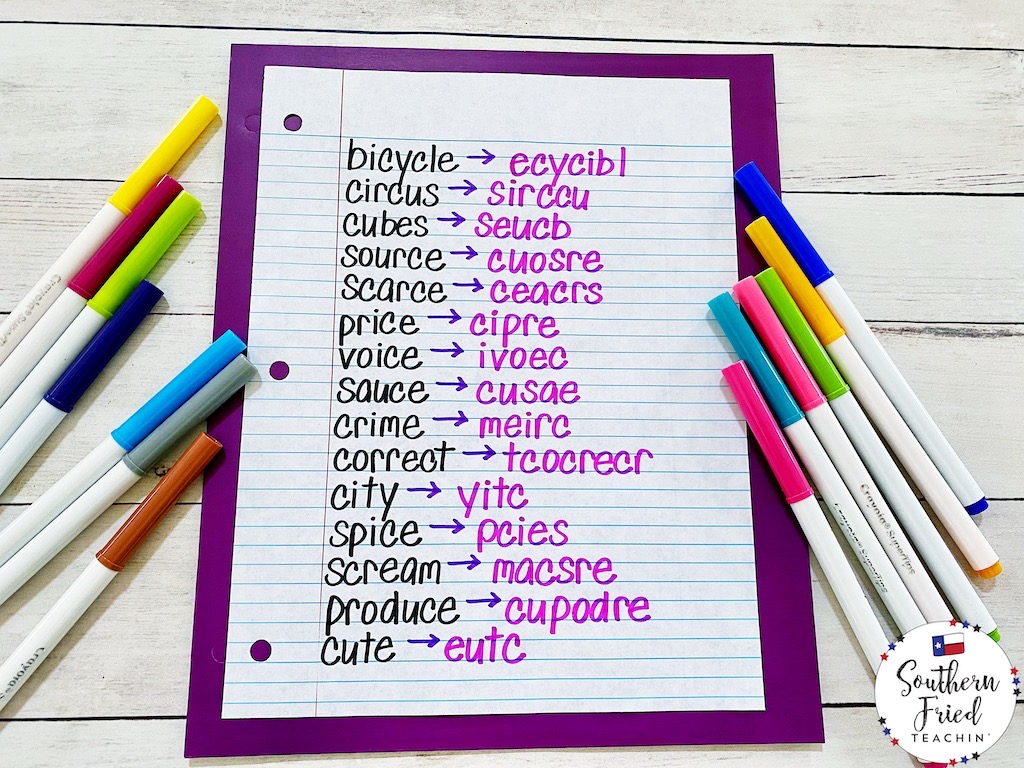 bicycle → ecycibl
circus → sirccu
cubes → seucb
source → cuosre
scarce → ceacrs
price → cipre
voice → ivoec
sauce → cusae
crime → meirc
correct → tcocrecr
city → yitc
spice → pcies
scream → macsre
produce → cupodre
cute → eutc
Crayola® SuperTips
Crayola® SuperTips
Southern
Fried
TEACHIN'